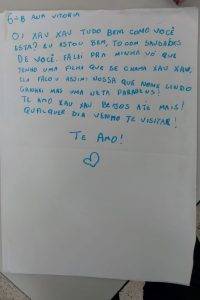 6-B ANA VITÓRIA
OI XAU XAU TUDO BEM COMO VOCÊ
ESTA? EU ESTOU BEM, TO COM SAUDADES
DE VOCÊ. FALEI PRA MINHA VÓ QUE
TENHO UMA FILHA QUE SE CHAMA XAU XAU,
ELA FALOU ASSIM NOSSA QUE NOME LINDO
GANHEI MAS UMA NETA PARABENS!
TE AMO XAU XAU BEIJOS ATÉ MAIS!
QUALQUER DIA VENHO TE VISITAR!
TE AMO!